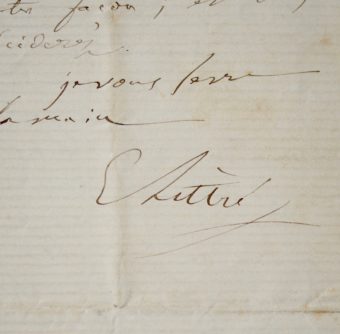 façon, et
déciderez
je vous serre
la main
E Littré